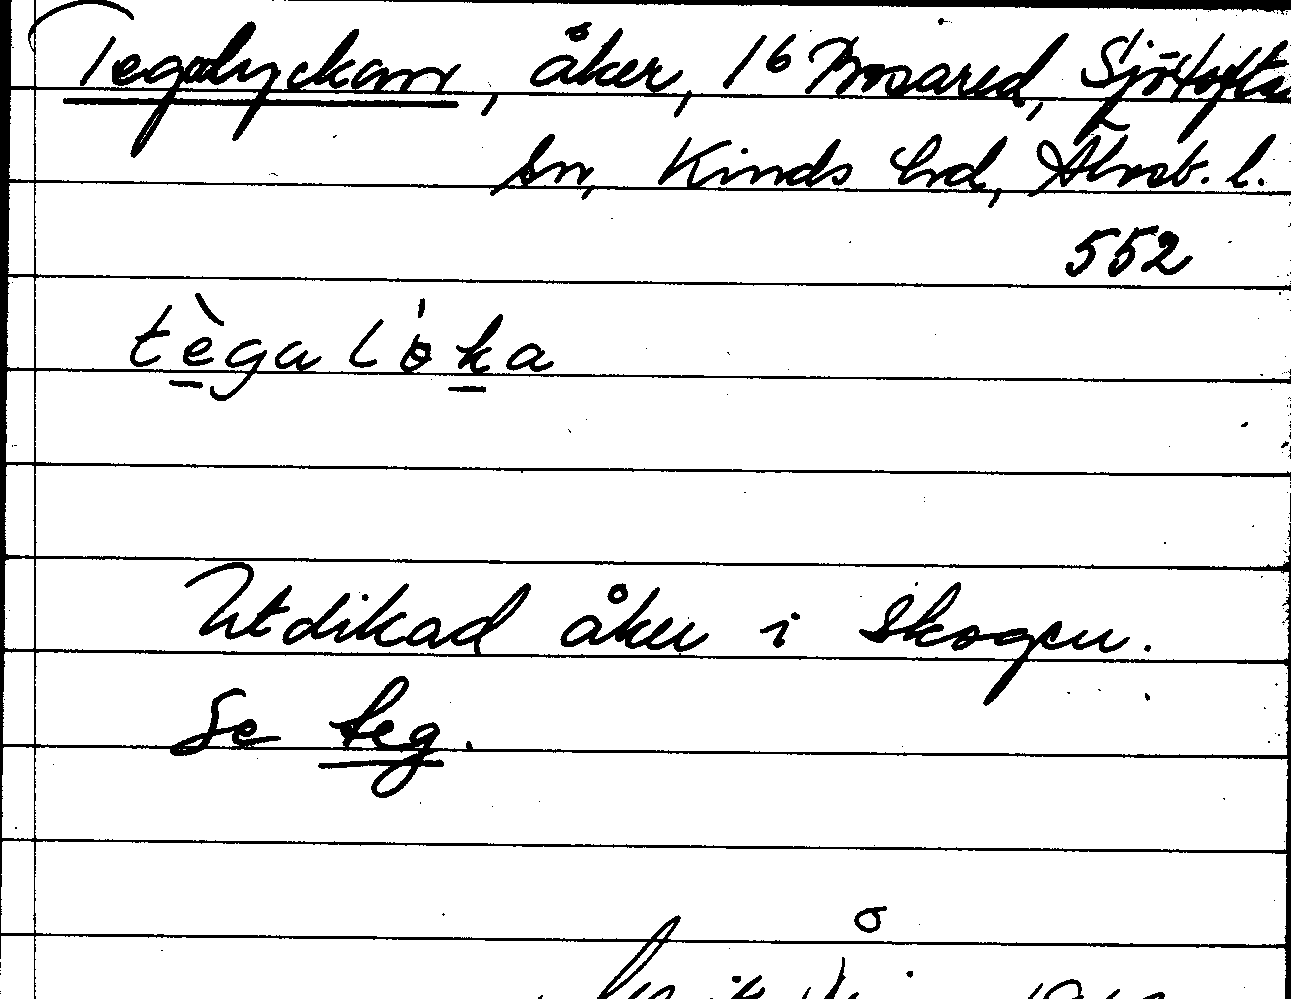 Tegalyckan, åker, 16 Mosared, Sjötofta
sn, Kinds hd, Älvsb. l.
552
tègalɵ́ka
Utdikad åker i skogen.
Se teg.